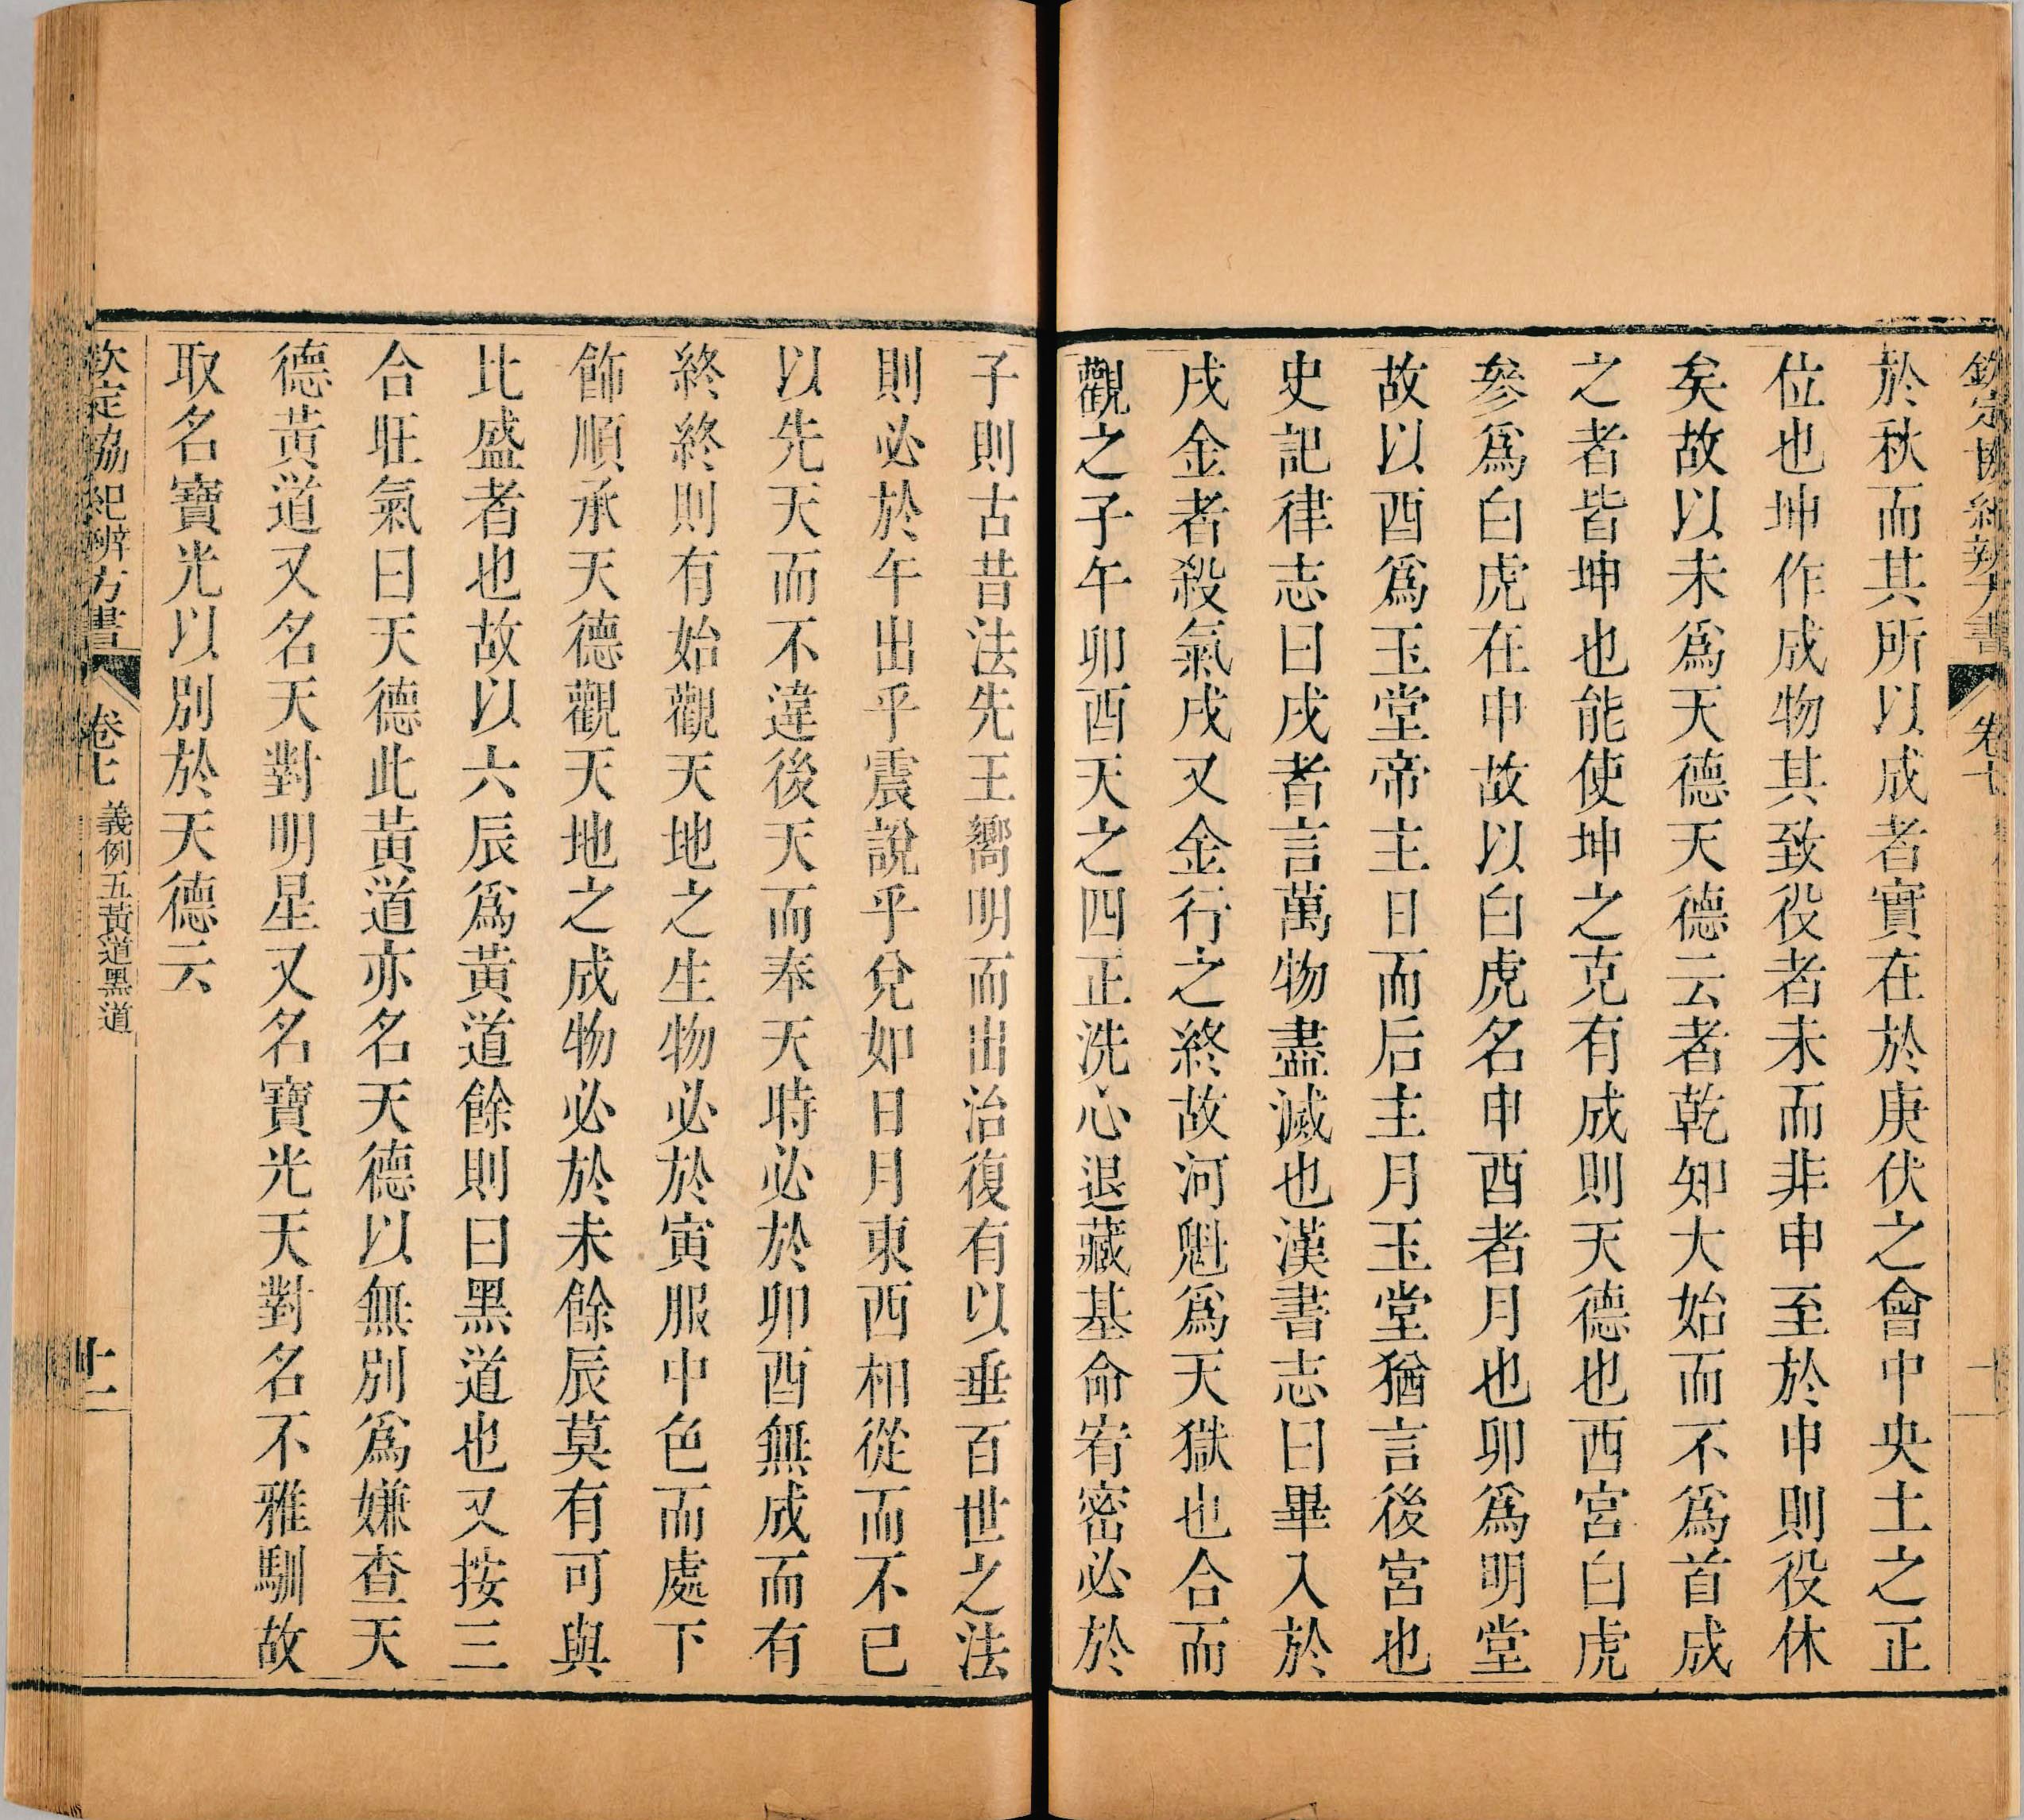 欽定協紀辨方書 卷七
於秋而其所以成者實在於庚伏之會中央土之正
位也坤作成物其致役者未而非申至於申則役休
矣故以未爲天德天德云者乾知大始而不爲首成
之者皆坤也能使坤之克有成則天德也西宮白虎
參爲白虎在申故以白虎名申酉者月也卯爲明堂
故以酉爲玉堂帝主日而后主月玉堂猶言後宮也
史記律志曰戌者言萬物盡滅也漢書志曰畢入於
戌金者殺氣戌又金行之終故河魁爲天獄也合而
觀之子午卯酉天之四正洗心退藏基命宥密必於
子則古昔法先王嚮明而出治復有以垂百世之法
則必於午出乎震說乎兌如日月東西相從而不已
以先天而不違後天而奉天時必於卯酉無成而有
終終則有始觀天地之生物必於寅服中色而處下
飾順承天德觀天地之成物必於未餘辰莫有可與
比盛者也故以六辰爲黃道餘則曰黑道也又按三
合旺氣曰天德此黃道亦名天德以無別爲嫌查天
德黃道又名天對明星又名寶光天對名不雅馴故
取名寶光以別於天德云
欽定協紀辨方書 卷七 義例五黃道黑道 十一